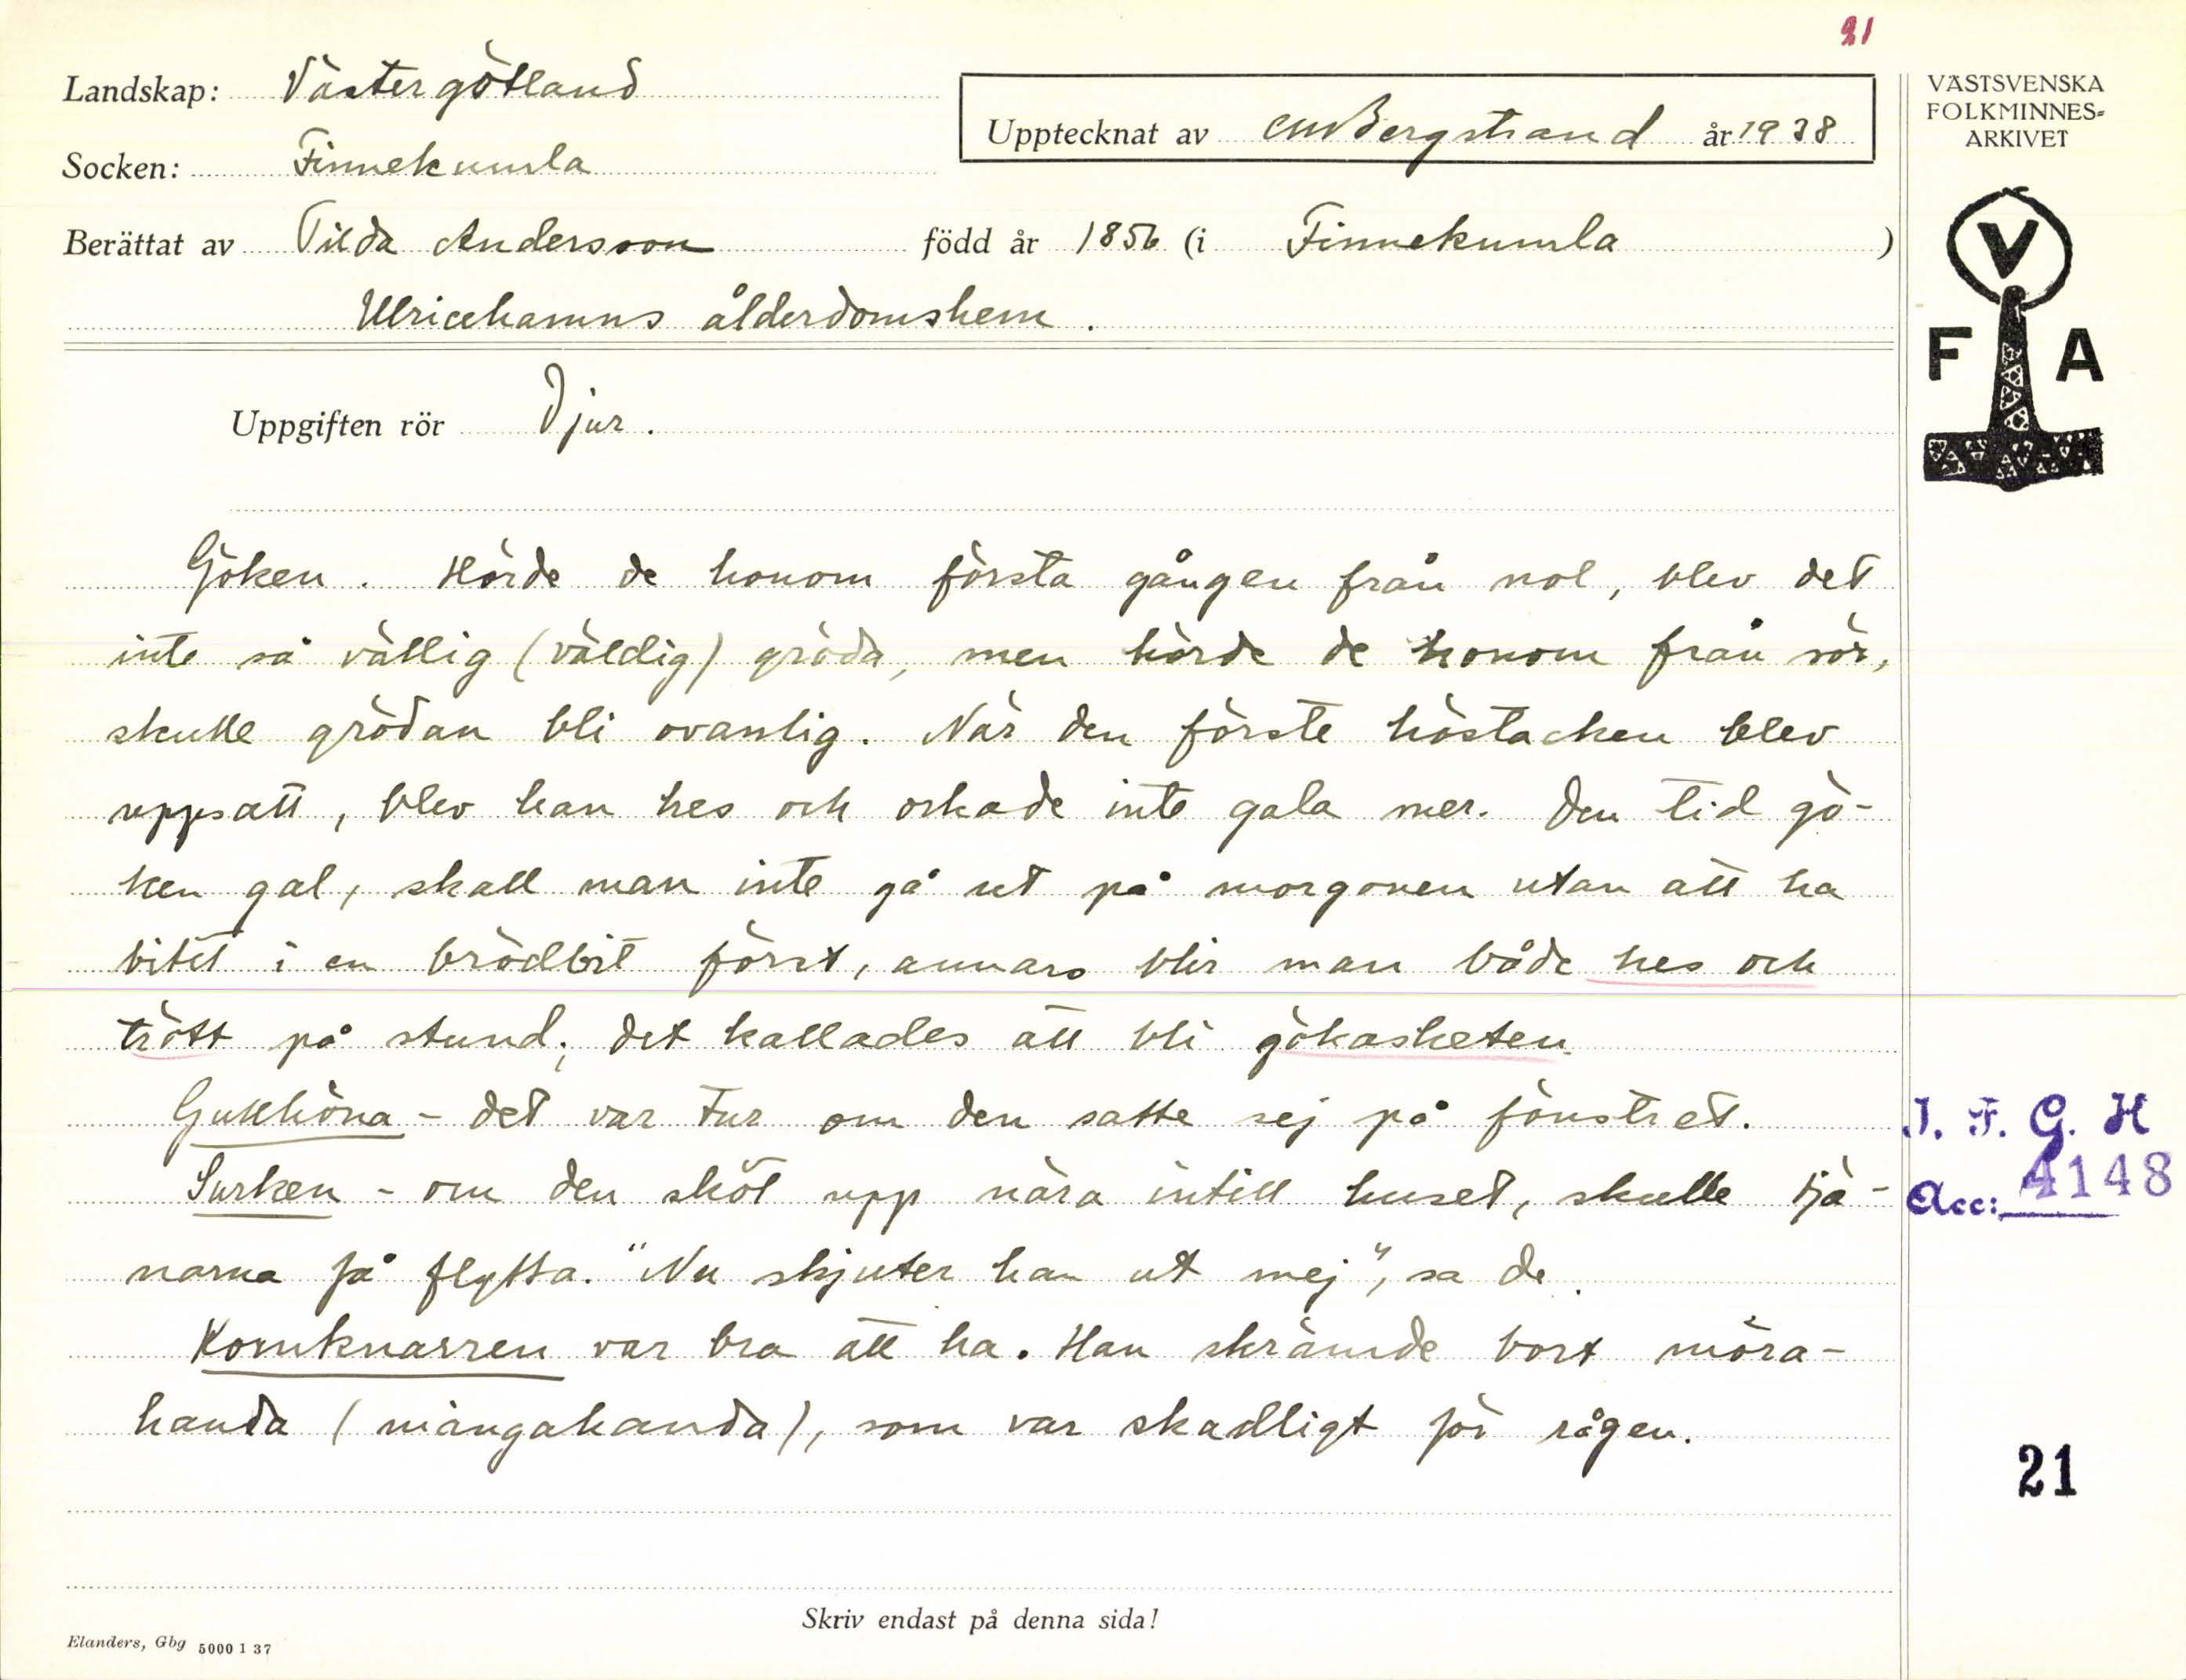 21
Landskap: Västergötland
Upptecknat av CMBergstrand år 1938
VÄSTSVENSKA
FOLKMINNES=
ARKIVET
Socken: Finnekumla
Berättat av Tilda Andersson född år 1856 (i Finnekumla )
Ulricehamns ålderdomshem.
V
F A
Uppgiften rör Djur.
Göken. Hörde de honom första gången från nol, blev det
inte så vällig (väldig) gröda, men hörde de honom från sör,
skulle grödan bli ovanlig. När den förste höstacken blev
uppsatt, blev han hes och orkade inte gala mer. Den tid gö-
ken gal, skall man inte gå ut på morgonen utan att ha
bitit i en brödbit först, annars blir man både hes och
trött på stund; det kallades att bli gökasketen.
Gukhöna - det var tur om den satte sej på fönstret.
Surken - om den sköt upp nära intill huset, skulle tjä-
narna få flytta. "Nu skjuter han ut mej", sa de.
Kornknarren var bra att ha. Han skrämde bort möra-
handa (mångahanda), som var skadligt för rågen.
I. F. G. H
Acc: 4148
21
Skriv endast på denna sida!
Elanders, Gbg 5000 1 37